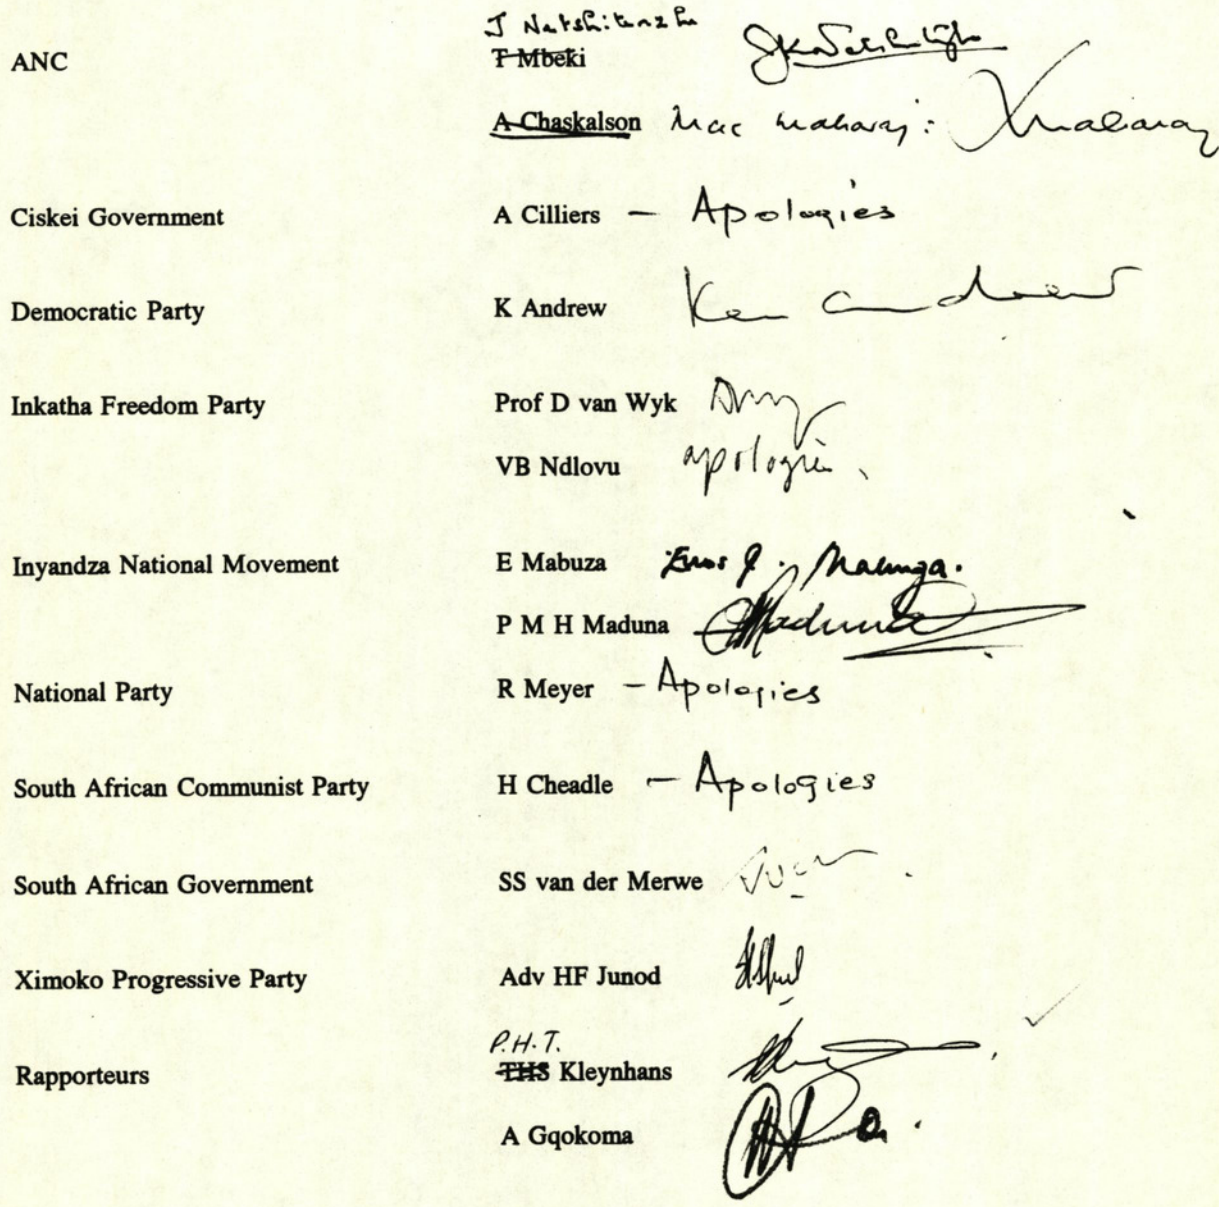 J Netshitenzhe
ANC T Mbeki
A Chaskalson Mac Maharaj:
Ciskei Government A Cilliers – Apologies
Democratic Party K Andrew Ken Andrew
Inkatha Freedom Party Prof D van Wyk
VB Ndlovu apologies
Inyandza National Movement E Mabuza Enos J. Mabuza.
P M H Maduna Maduna
National Party R Meyer – Apologies
South African Communist Party H Cheadle – Apologies
South African Government SS van der Merwe
Ximoko Progressive Party Adv HF Junod
P.H.T.
Rapporteurs THS Kleynhans
A Gqokoma